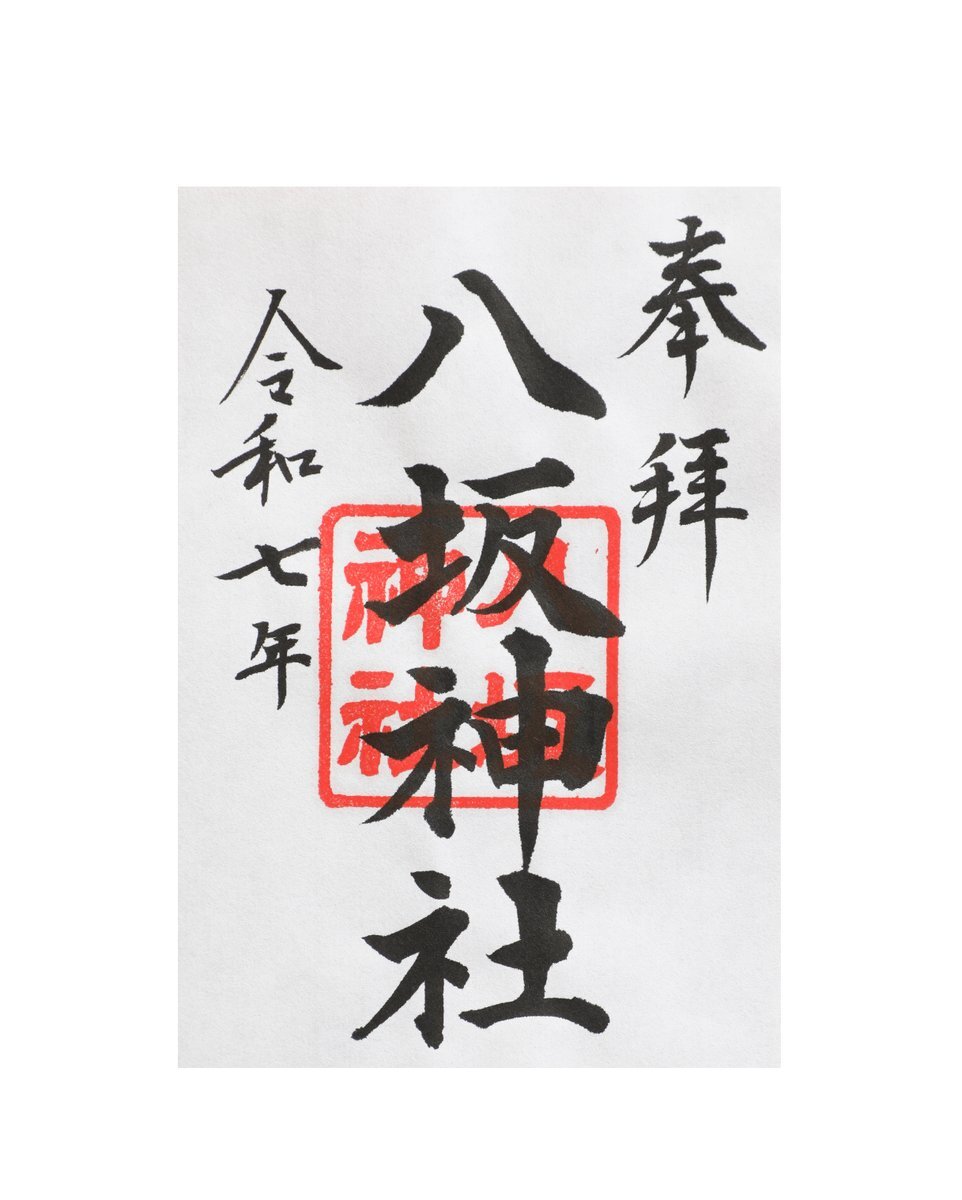 奉拝
八坂神社
令和七年
八坂
神社